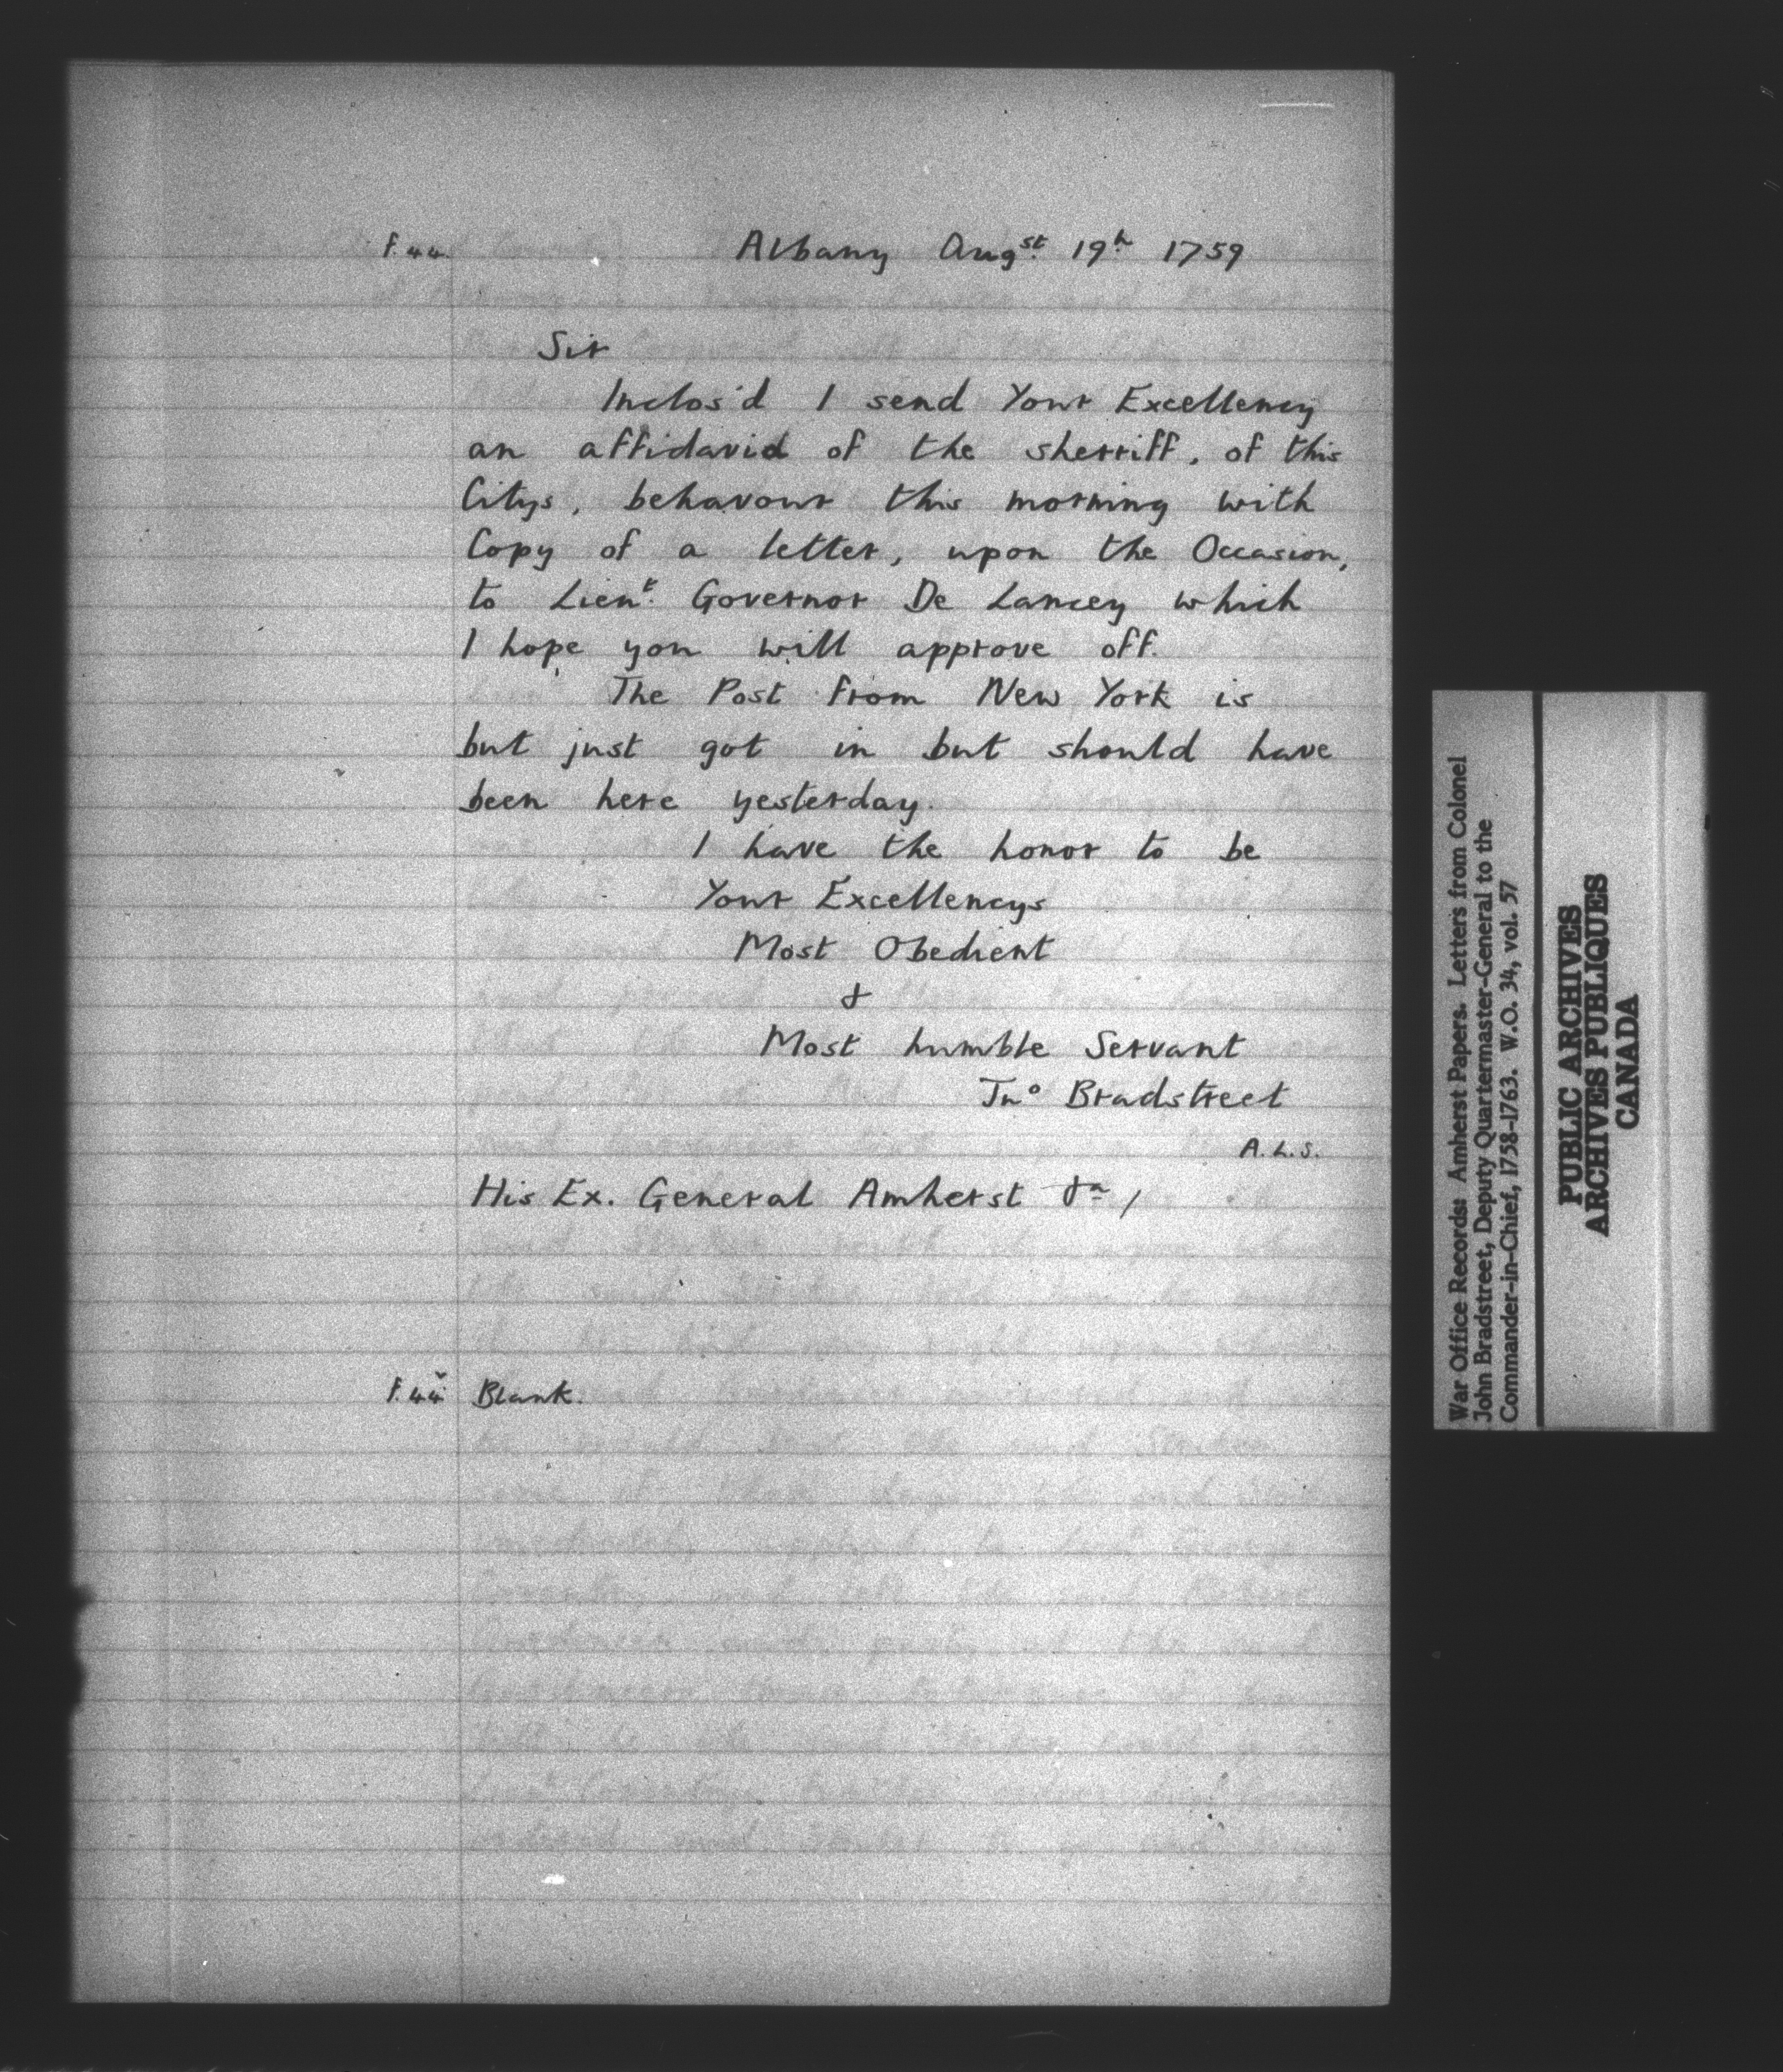 f.44. Albany Augst. 19h 1759
Sir
Inclos'd I send Your Excellency
an affidavid of the sherriff, of this
Citys, behavour this morning with
Copy of a letter, upon the Occasion,
to Lieut. Governor De Lancey which
I hope you will approve off.
The Post from New York is
but just got in but should have
been here yesterday.
I have the honor to be
Your Excellencys
Most Obedient
&
Most humble Servant
Jno Bradstreet
A.L.S.
His Ex. General Amherst &a /
f.44v. Blank.
War Office Records: Amherst Papers. Letters from Colonel
John Bradstreet, Deputy Quartermaster-General to the
Commander-in-Chief, 1758-1763. W.O. 34, vol. 57
PUBLIC ARCHIVES
ARCHIVES PUBLIQUES
CANADA